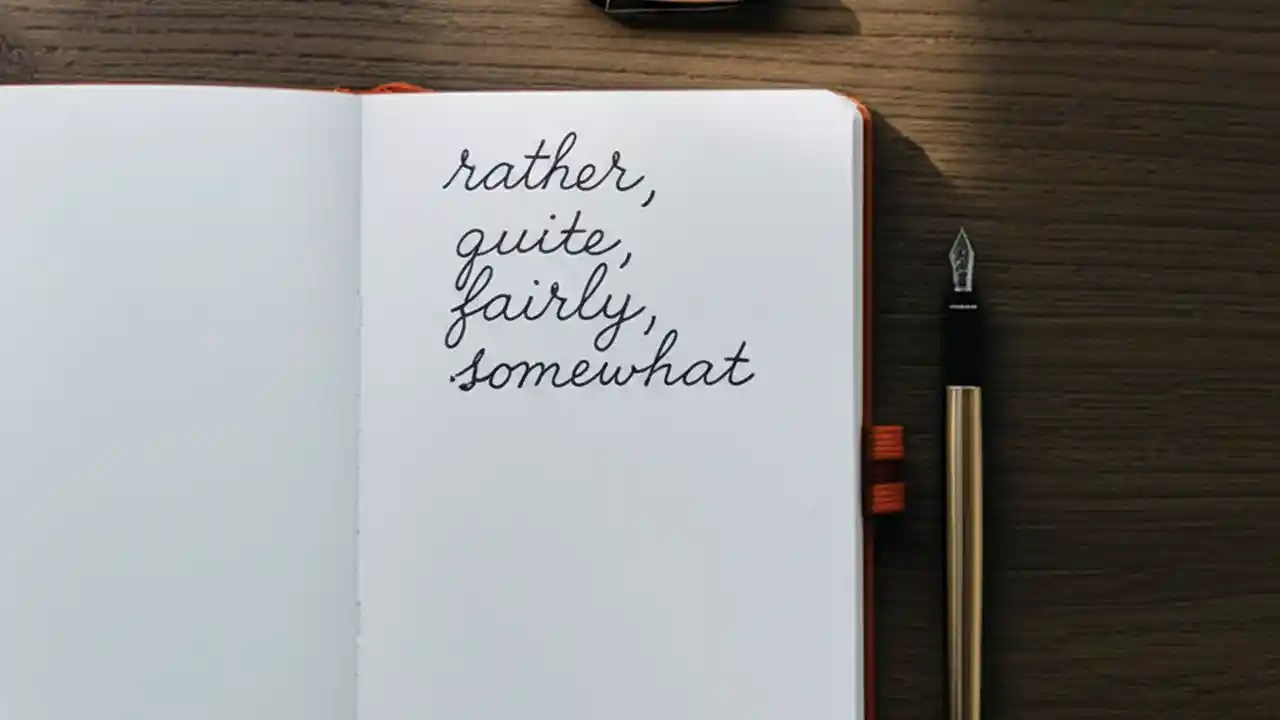 rather,
quite,
fairly,
somewhat